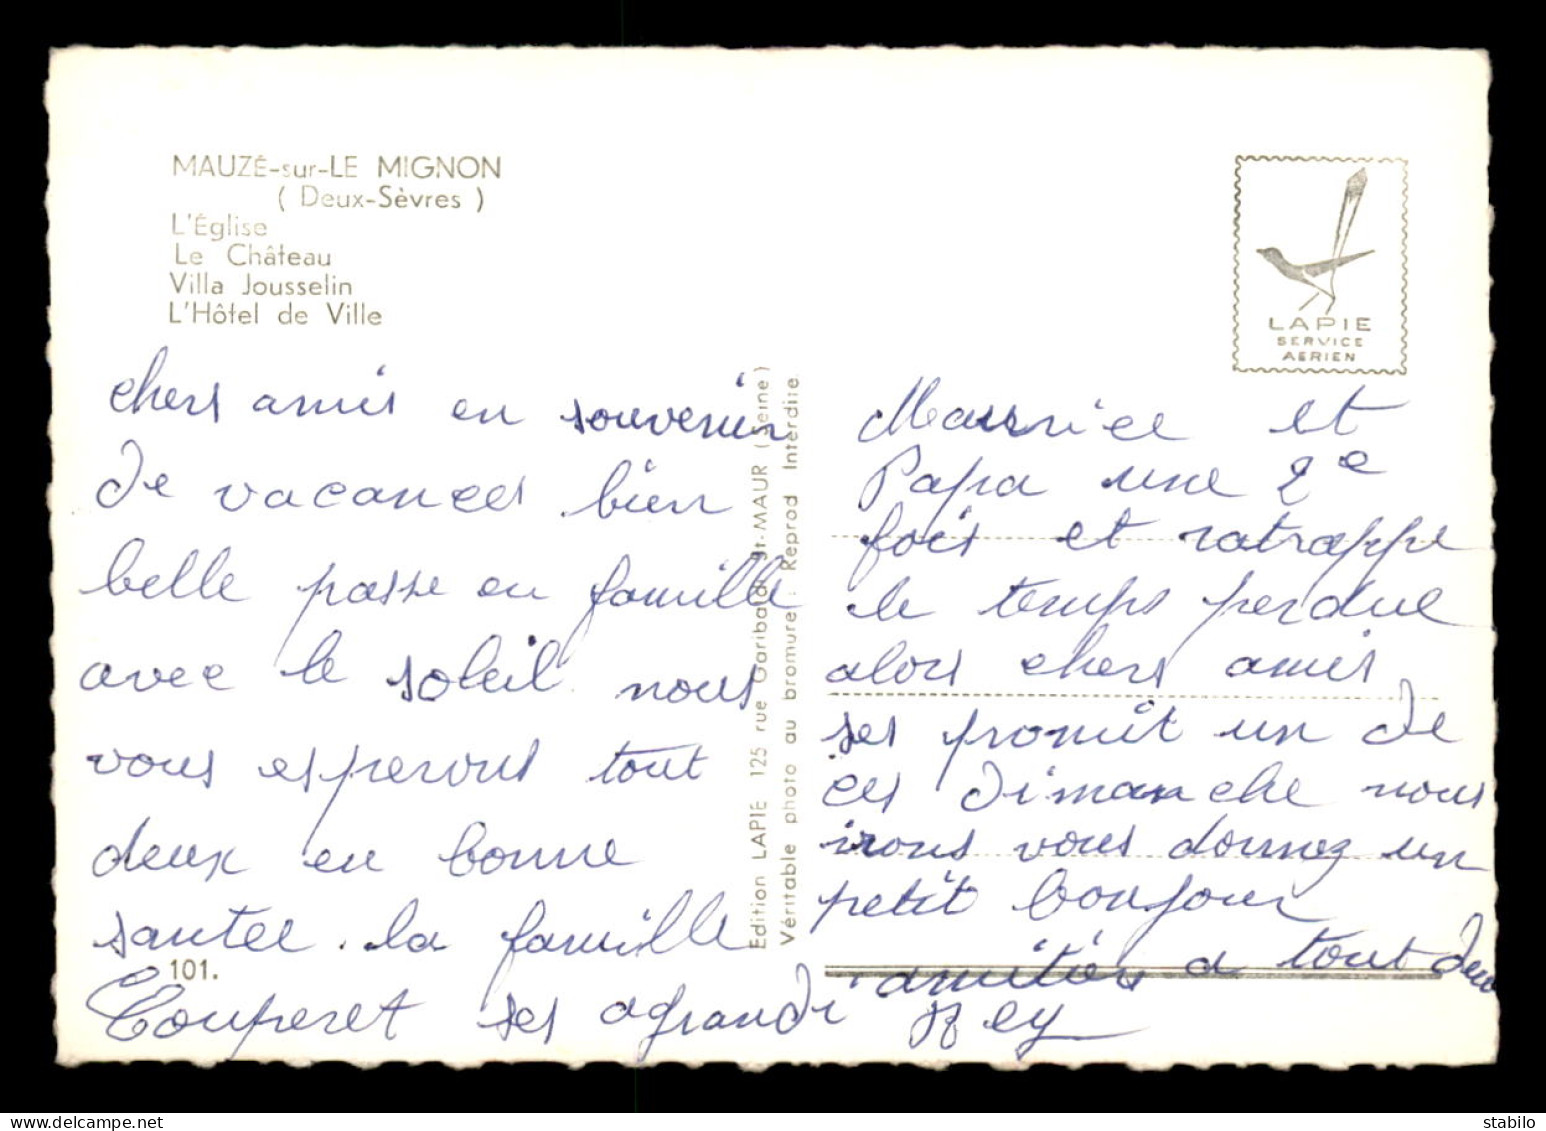 MAUZÉ-sur-LE MIGNON
( Deux-Sèvres )
L'Église
Le Château
Villa Jousselin
L'Hôtel de Ville
LAPIE
SERVICE
AERIEN
chers amis en souvenir
de vacances bien
belle passe en famille
avec le soleil nous
vous esperons tout
deux en bonne
santee. la famille
Couperet ses agrandi
101.
Edition LAPIE 125 rue Garibaldi St-MAUR (Seine)
Véritable photo au bromure. Reprod Interdite
Maurice et
Papa une 2e
fois et ratrappe
le temps perdue
alors chers amis
ses promit un de
ces dimanche nous
irons vous donnez un
petit bonjour
amitiés a tout deux
Rey
stabilo